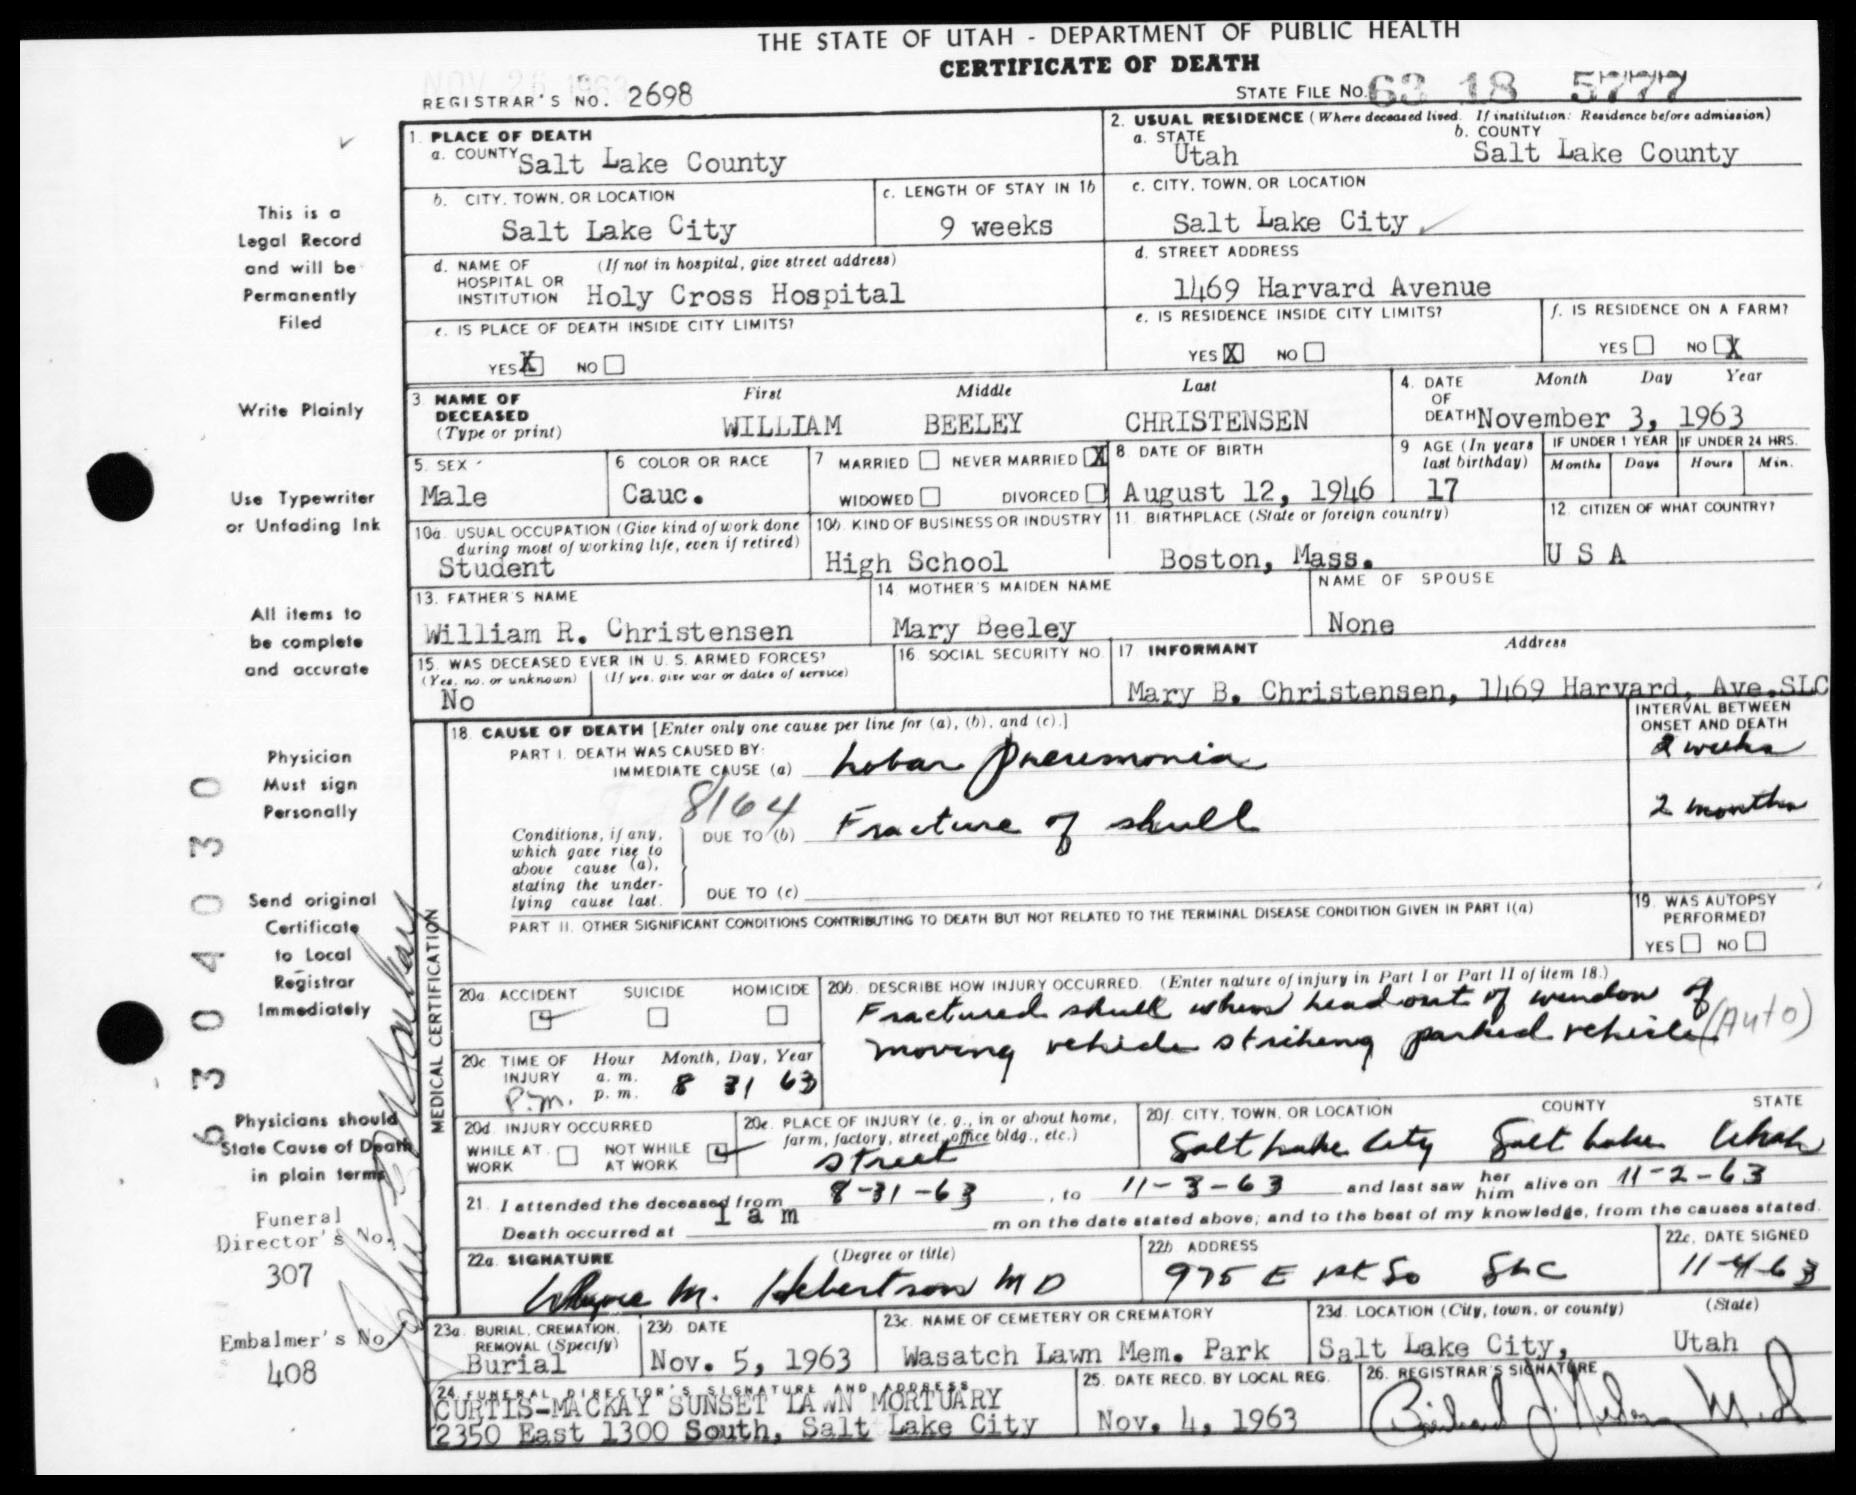 THE STATE OF UTAH - DEPARTMENT OF PUBLIC HEALTH
CERTIFICATE OF DEATH
NOV 26 1963
REGISTRAR'S NO. 2698
STATE FILE NO. 63 18 5777
1. PLACE OF DEATH
a. COUNTY Salt Lake County
2. USUAL RESIDENCE (Where deceased lived. If institution: Residence before admission)
a. STATE Utah b. COUNTY Salt Lake County
b. CITY, TOWN, OR LOCATION Salt Lake City
c. LENGTH OF STAY IN 1b 9 weeks
c. CITY, TOWN, OR LOCATION Salt Lake City
d. NAME OF HOSPITAL OR INSTITUTION (If not in hospital, give street address) Holy Cross Hospital
d. STREET ADDRESS 1469 Harvard Avenue
e. IS PLACE OF DEATH INSIDE CITY LIMITS? YES X NO
e. IS RESIDENCE INSIDE CITY LIMITS? YES X NO
f. IS RESIDENCE ON A FARM? YES NO X
3. NAME OF DECEASED (Type or print) First Middle Last
WILLIAM BEELEY CHRISTENSEN
4. DATE OF DEATH Month Day Year November 3, 1963
5. SEX Male
6 COLOR OR RACE Cauc.
7 MARRIED NEVER MARRIED X WIDOWED DIVORCED
8. DATE OF BIRTH August 12, 1946
9 AGE (In years last birthday) 17
IF UNDER 1 YEAR Months Days
IF UNDER 24 HRS. Hours Min.
10a. USUAL OCCUPATION (Give kind of work done during most of working life, even if retired) Student
10b. KIND OF BUSINESS OR INDUSTRY High School
11. BIRTHPLACE (State or foreign country) Boston, Mass.
12. CITIZEN OF WHAT COUNTRY? U S A
13. FATHER'S NAME William R. Christensen
14. MOTHER'S MAIDEN NAME Mary Beeley
NAME OF SPOUSE None
15. WAS DECEASED EVER IN U. S. ARMED FORCES? (Yes, no, or unknown) (If yes, give war or dates of service) No
16. SOCIAL SECURITY NO.
17. INFORMANT Address
Mary B. Christensen, 1469 Harvard, Ave.SLC
18. CAUSE OF DEATH [Enter only one cause per line for (a), (b), and (c).]
INTERVAL BETWEEN ONSET AND DEATH
PART I. DEATH WAS CAUSED BY:
IMMEDIATE CAUSE (a) Lobar pneumonia 2 weeks
8164
Conditions, if any, which gave rise to above cause (a), stating the underlying cause last.
DUE TO (b) Fracture of skull 2 months
DUE TO (c)
PART II. OTHER SIGNIFICANT CONDITIONS CONTRIBUTING TO DEATH BUT NOT RELATED TO THE TERMINAL DISEASE CONDITION GIVEN IN PART I(a)
19. WAS AUTOPSY PERFORMED? YES NO
MEDICAL CERTIFICATION
20a. ACCIDENT SUICIDE HOMICIDE
20b. DESCRIBE HOW INJURY OCCURRED. (Enter nature of injury in Part I or Part II of item 18.)
Fractured skull when head out of window of
moving vehicle striking parked vehicle (Auto)
20c. TIME OF INJURY Hour Month, Day, Year a. m. p. m. P.M. 8 31 63
20d. INJURY OCCURRED WHILE AT WORK NOT WHILE AT WORK
20e. PLACE OF INJURY (e. g., in or about home, farm, factory, street, office bldg., etc.) street
20f. CITY, TOWN, OR LOCATION COUNTY STATE
Salt Lake City Salt Lake Utah
21. I attended the deceased from 8-31-63, to 11-3-63 and last saw her him alive on 11-2-63
Death occurred at 1 a m m on the date stated above; and to the best of my knowledge, from the causes stated.
22a. SIGNATURE (Degree or title) Wayne M. Hebertson MD
22b. ADDRESS 975 E 1st So SLC
22c. DATE SIGNED 11-4-63
23a. BURIAL, CREMATION, REMOVAL (Specify) Burial
23b. DATE Nov. 5, 1963
23c. NAME OF CEMETERY OR CREMATORY Wasatch Lawn Mem. Park
23d. LOCATION (City, town, or county) (State) Salt Lake City, Utah
24. FUNERAL DIRECTOR'S SIGNATURE AND ADDRESS
CURTIS-MACKAY SUNSET LAWN MORTUARY
2350 East 1300 South, Salt Lake City
25. DATE RECD. BY LOCAL REG. Nov. 4, 1963
26. REGISTRAR'S SIGNATURE
This is a
Legal Record
and will be
Permanently
Filed
Write Plainly
Use Typewriter
or Unfading Ink
All items to
be complete
and accurate
Physician
Must sign
Personally
Send original
Certificate
to Local
Registrar
Immediately
Physicians should
State Cause of Death
in plain terms
Funeral
Director's No.
307
Embalmer's No.
408
6304030